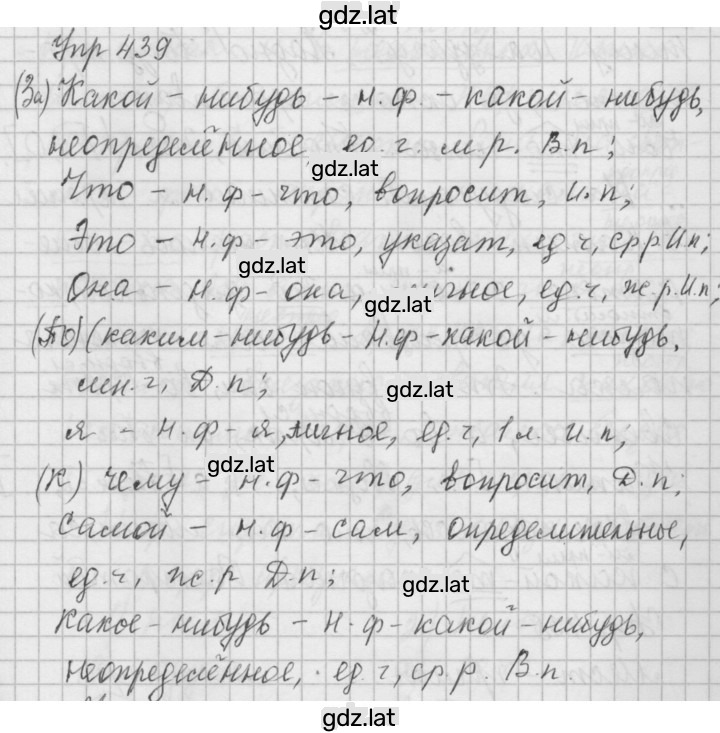 gdz.lat
Упр 439
(За) Какой-нибудь - н.ф. - какой-нибудь,
неопределённое ед.ч. м.р. В.п;
gdz.lat
Что - н.ф - что, вопросит, И.п;
Это - н.ф - это, указат, ед.ч, ср.р И.п;
gdz.lat
Она - н.ф - она, ед.ч, ж.р. И.п;
gdz.lat
(По) (каким-нибудь - н.ф - какой-нибудь,
мн.ч, Д.п;
gdz.lat
я - н.ф - я, личное, ед.ч, 1 л. И.п;
gdz.lat
(К) чему - н.ф - что, вопросит, Д.п;
самой - н.ф - сам, определительные,
ед.ч, ж.р Д.п;
gdz.lat
Какое-нибудь - н.ф - какой-нибудь,
неопределённое, ед.ч, ср.р. В.п.
gdz.lat